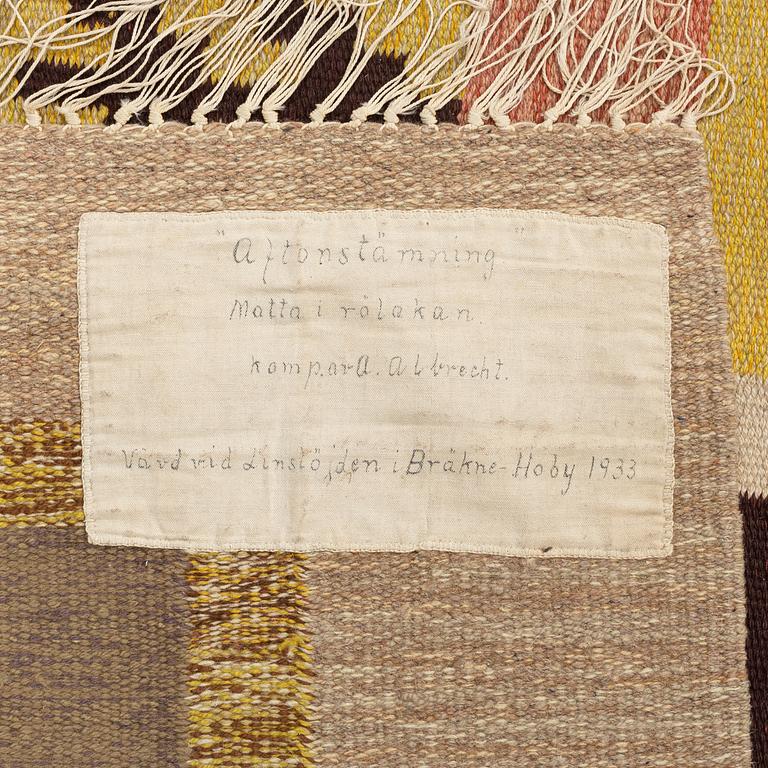 "Aftonstämning"
Matta i rölakan.
komp. av A. Albrecht.
Vävd vid Linslöjden i Bräkne-Hoby 1933